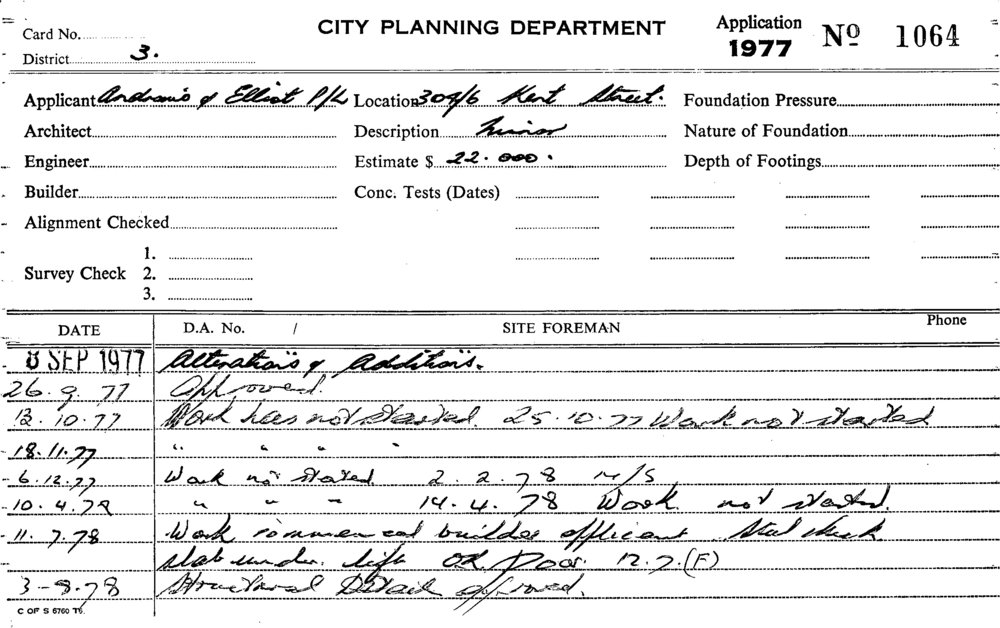 CITY PLANNING DEPARTMENT
Application 1977 Nº 1064
Card No.
District 3.
Applicant & Elliot P/L Location 304/6 Kent Street. Foundation Pressure
Architect Description Minor Nature of Foundation
Engineer Estimate $ 22.000. Depth of Footings
Builder Conc. Tests (Dates)
Alignment Checked
Survey Check 1.
2.
3.
DATE D.A. No. / SITE FOREMAN Phone
8 SEP 1977 Alterations & Additions.
26.9.77 Approved.
12.10.77 Work has not started. 25.10.77 Work not started
18.11.77 " " " "
6.12.77 Work not started 2.2.78 N/S
10.4.78 " " " 14.4.78 Work not started.
11.7.78 Work commenced builder applicant Steel check
slab under lift OK Poor. 12.7.(F)
3-8.78 Structural Details approved.
C OF S 6760 T6.